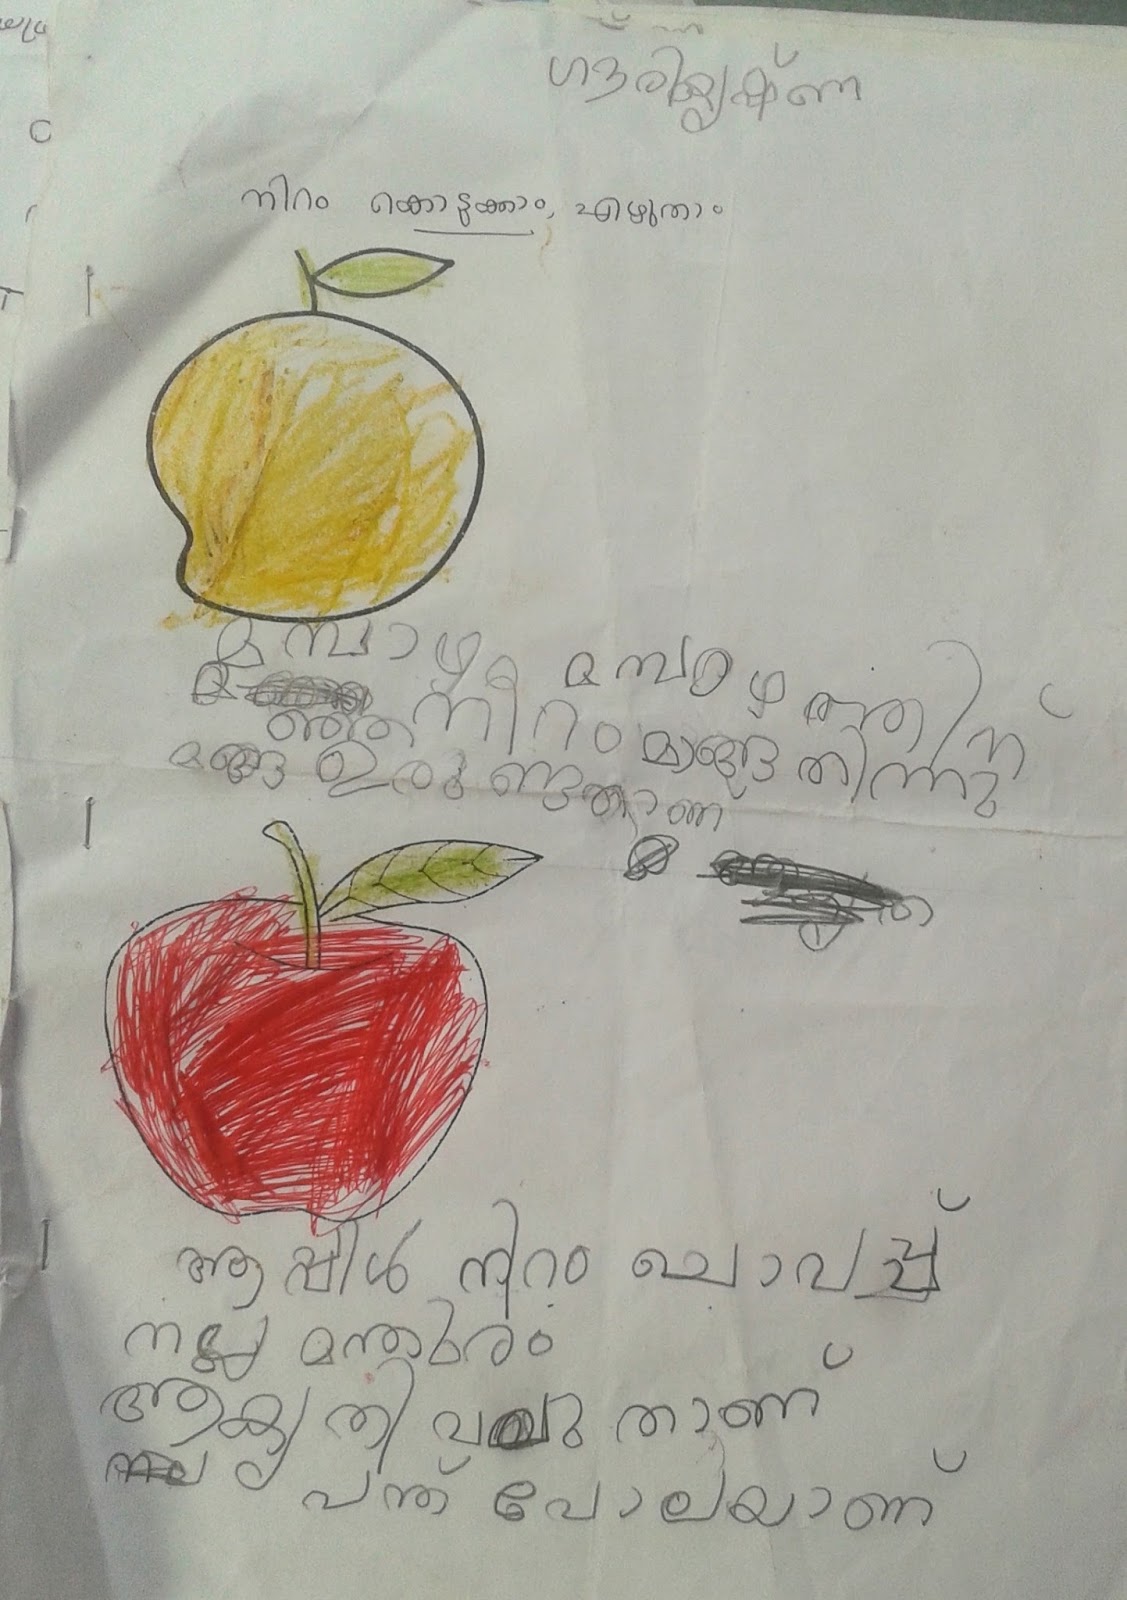 ഗൗരികൃഷ്ണ
നിറം കൊടുക്കാം, എഴുതാം
മമ്പാഴം മമ്പഴത്തിന്
ഞ്ഞ നീറം മാങ്ങ തിന്നു
മങ്ങ ഇരുണ്ടതാണ്
ആപ്പിൾ നിറം ചൊവപ്പ്
നല്ല മന്തുരം
ആകൃതി വലുതാണ്
പന്ത് പോലയാണ്